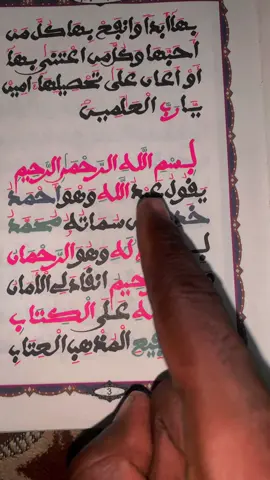 بها أبدا وانفع بها كل من
أحبها وكل من اعتنى بها
أو أعان على تحصيلها آمين
يا رب العلمين
بسم الله الرحمن الرحيم
يقول عبد الله وهو أحمد
سماته محمد
له وهو الرحمان
انقاد لي الأمان
له على الكتاب
المذهب العتاب
3